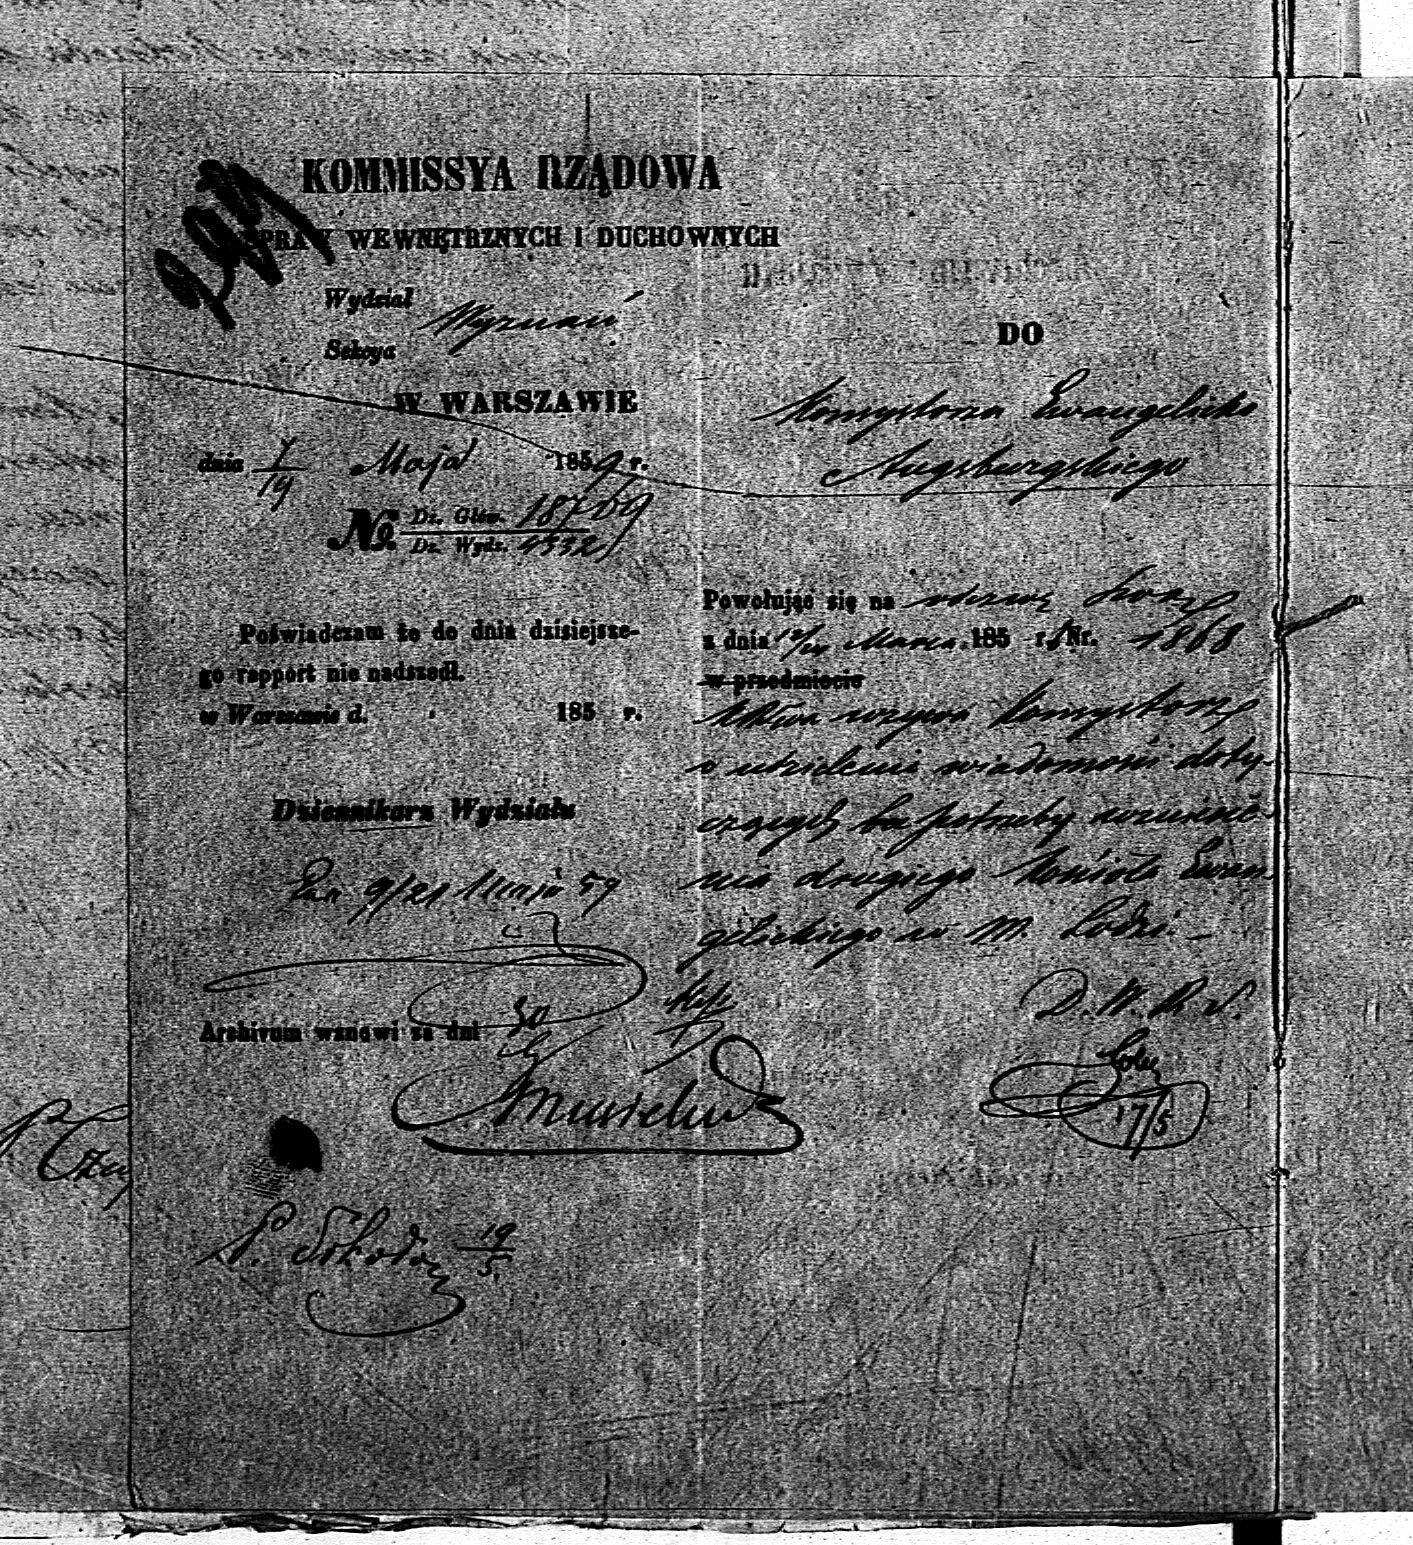 299
KOMMISSYA RZĄDOWA
SPRAW WEWNĘTRZNYCH I DUCHOWNYCH
Wydział
Wyznań
Sekcya
W WARSZAWIE
dnia 7/19 Maja 1859 r.
№ Dz. Głów. 18709
Dz. Wydz. 4332
Poświadczam że do dnia dzisiejsze-
go rapport nie nadszedł.
w Warszawie d. 185 r.
Dziennikarz Wydziału
9/21 Maja 59
Archivum wznowi za dni 30
19/5
DO
Konsystorza Ewangelicko
Augsburgskiego
Powołując się na odezwę swoją
z dnia 12/24 Marca 185 r. Nr. 1868
w przedmiocie
K.R. wzywa Konsystorz
o udzielenie wiadomości doty-
czącej potrzeby wzniesie-
nia drugiego Kościoła Ewan-
gelickiego w M. Łodzi.
D. W. R. S.
17/5